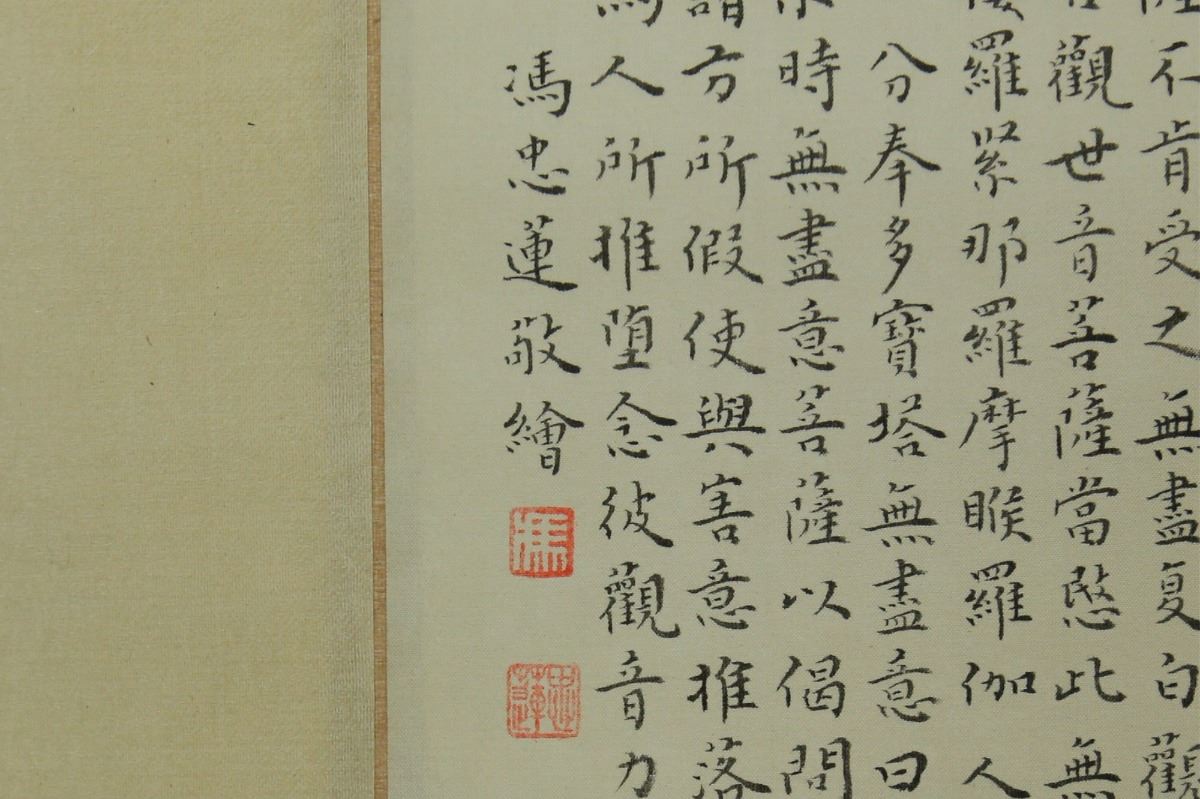 不肯受之無盡复白觀
觀世音菩薩當愍此無
羅緊那羅摩睺羅伽人
分奉多寶塔無盡意曰
時無盡意菩薩以偈問
方所假使與害意推落
人所推堕念彼觀音力
馮忠蓮敬繪
馮
忠蓮